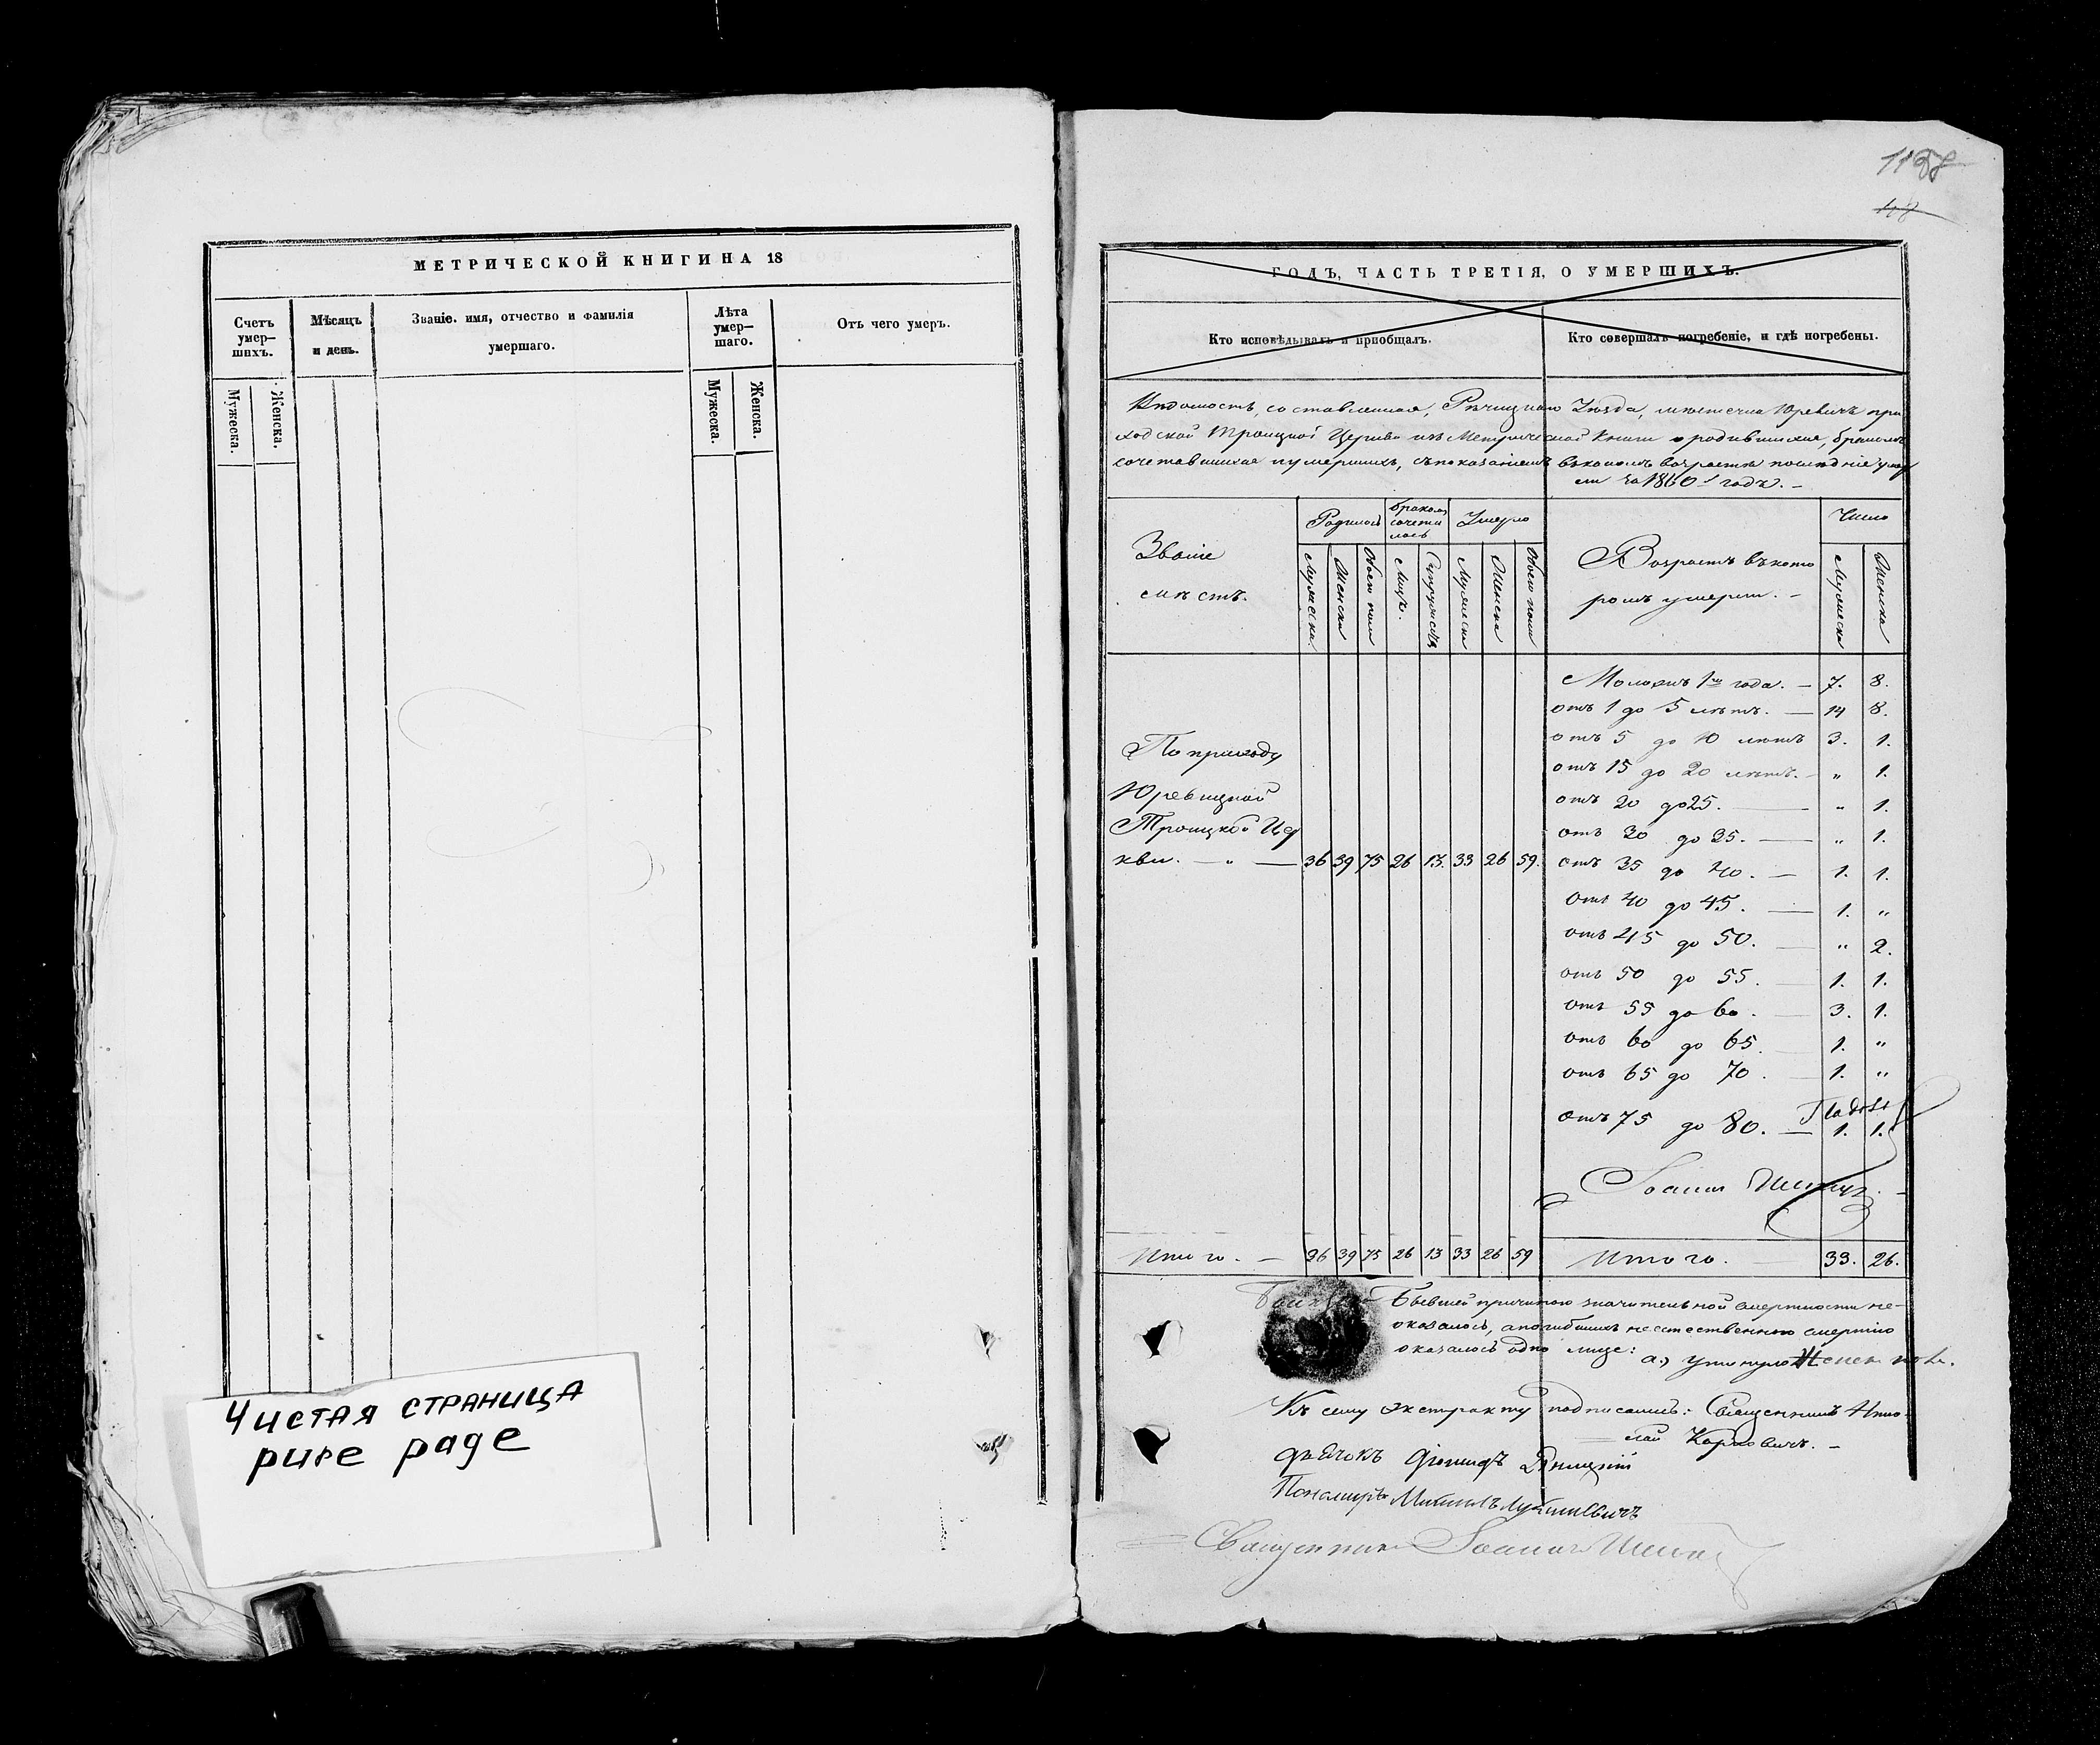 МЕТРИЧЕСКОЙ КНИГИ НА 18
Счетъ умер-
шихъ.
Мѣсяцъ
и день.
Званіе. имя, отчество и фамилія
умершаго.
Лѣта
умер-
шаго.
Отъ чего умеръ.
Мужеска.
Женска.
Мужеска.
Женска.
Чистая страница
pure page
1188
118
ГОДЪ, ЧАСТЬ ТРЕТІЯ, О УМЕРШИХЪ.
Кто исповѣдывалъ и пріобщалъ.
Кто совершалъ погребеніе, и гдѣ погребены.
Вѣдомость, составленная, Рѣчицкаго Уѣзда, мѣстечка Юревичъ при
ходской Троицкой Церкви изъ Метрической Книги о родившихся, бракомъ
сочетавшихся и умершихъ, съ показаніемъ въ какомъ возрастѣ послѣдніе умер
ли за 1860 годъ. –
Званіе
мѣстъ.
Родилось
Бракомъ
сочета
лось
Умерло
Возрастъ въ кото
ромъ умерли. –
Число
Мужеска
Женска
Обоего пола
Лицъ.
Супружествъ
Мужеска
Женска
Обоего пола
Мужеска
Женска
По приходу
Юревицкой
Троицкой Цер
кви. — „ — 36 39 75 26 13. 33 26 59.
Моложе 1го года. – 7. 8.
отъ 1 до 5 лѣтъ. — 14 8.
отъ 5 до 10 лѣтъ 3. 1.
отъ 15 до 20 лѣтъ. – „ 1.
отъ 20 до 25. — „ 1.
отъ 30 до 35. — „ 1.
отъ 35 до 40. — 1. 1.
отъ 40 до 45. — 1. „
отъ 45 до 50. — „ 2.
отъ 50 до 55. — 1. 1.
отъ 55 до 60. — 3. 1.
отъ 60 до 65. — 1. „
отъ 65 до 70. — 1. „
отъ 75 до 80. — 1. 1.
Итого. – 36 39 75 26 13 33 26 59
Итого. 33. 26.
Бывшей причиною значительной смертности не-
оказалось, а погибшихъ неестественною смертію
оказалось одно лице:
а.) утонуло Женск. пола.
Къ сему экстракту подписались: Священникъ Нико-
лай Карповичъ. –
дьячокъ
Пономарь Михаилъ
Священникъ Іоаннъ